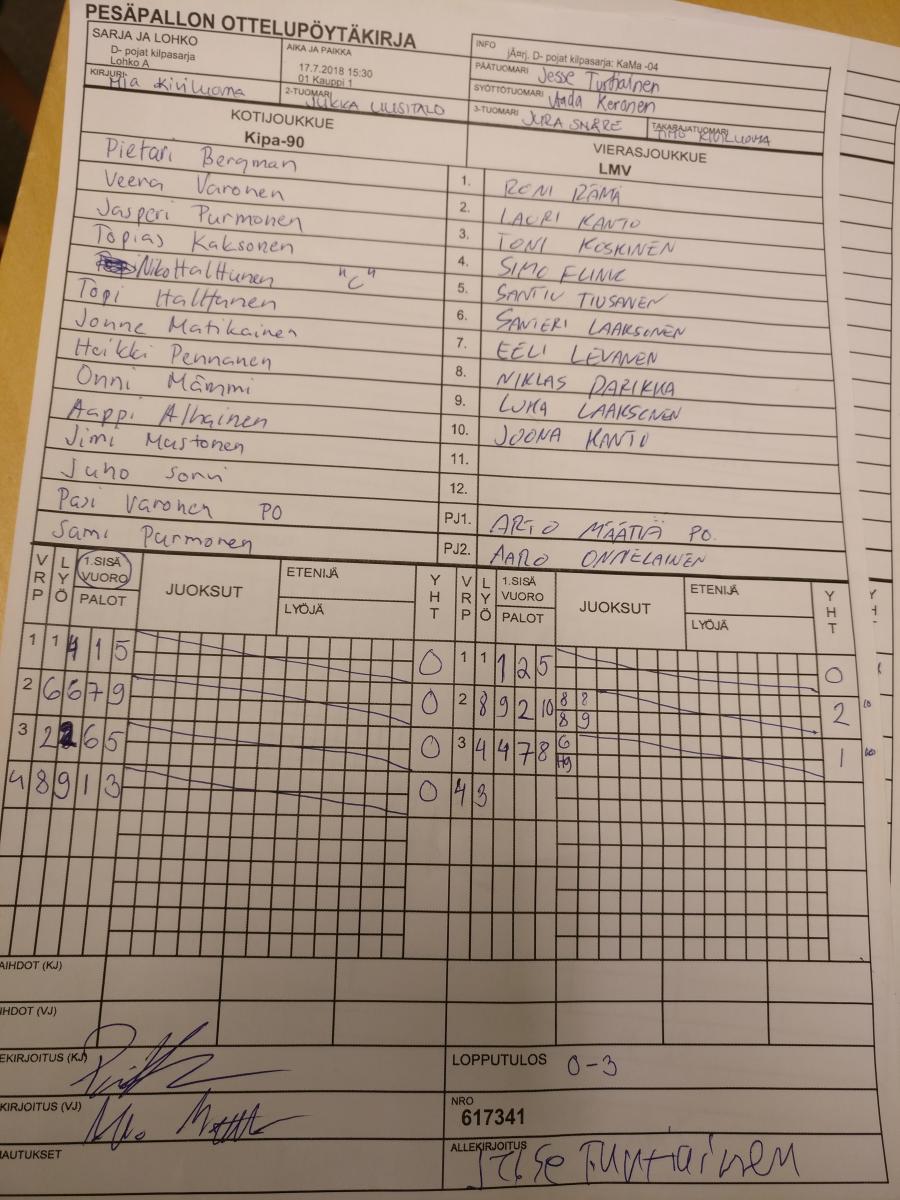 PESÄPALLON OTTELUPÖYTÄKIRJA
SARJA JA LOHKO
D- pojat kilpasarja
Lohko A
AIKA JA PAIKKA
17.7.2018 15:30
01 Kauppi 1
INFO
jÄ¤rj. D- pojat kilpasarja: KaMa -04
KIRJURI Mia Kiviluoma
2-TUOMARI JUKKA UUSITALO
PÄÄTUOMARI Jesse Turtiainen
SYÖTTÖTUOMARI Aada Keronen
3-TUOMARI JURA SNÅRE
TAKARAJATUOMARI TIMO KIVILUOMA
KOTIJOUKKUE
Kipa-90
VIERASJOUKKUE
LMV
Pietari Bergman 1. RONI RÄMÄ
Veera Varonen 2. LAURI KANTO
Jasperi Purmonen 3. TONI KOSKINEN
Topias Kaksonen 4. SIMO FLINK
Niko Halttunen "C" 5. SANTTU TIUSANEN
Topi Halttunen 6. SANTERI LAAKSONEN
Jonne Matikainen 7. EELI LEVANEN
Heikki Pennanen 8. NIKLAS PARIKKA
Onni Mämmi 9. LUKA LAAKSONEN
Aappi Alhainen 10. JOONA KANTO
Jimi Mustonen 11.
Juho Sorvi 12.
Pasi Varonen PO PJ1. ARTO MÄÄTTÄ PO.
Sami Purmonen PJ2. AARO ONNELAINEN
VRP LYÖ 1.SISÄ VUORO PALOT JUOKSUT ETENIJÄ LYÖJÄ YHT VRP LYÖ 1.SISÄ VUORO PALOT JUOKSUT ETENIJÄ LYÖJÄ YHT
1 1 4 1 5 0 1 1 1 2 5 0
2 6 6 7 9 0 2 8 9 2 10 8 8 2
8 9
3 2 2 6 5 0 3 4 4 7 8 6 1
H9
4 8 9 1 3 0 4 3
AIHDOT (KJ)
IHDOT (VJ)
EKIRJOITUS (KJ)
LOPPUTULOS 0-3
KIRJOITUS (VJ)
NRO
617341
IAUTUKSET
ALLEKIRJOITUS Jesse Turtiainen